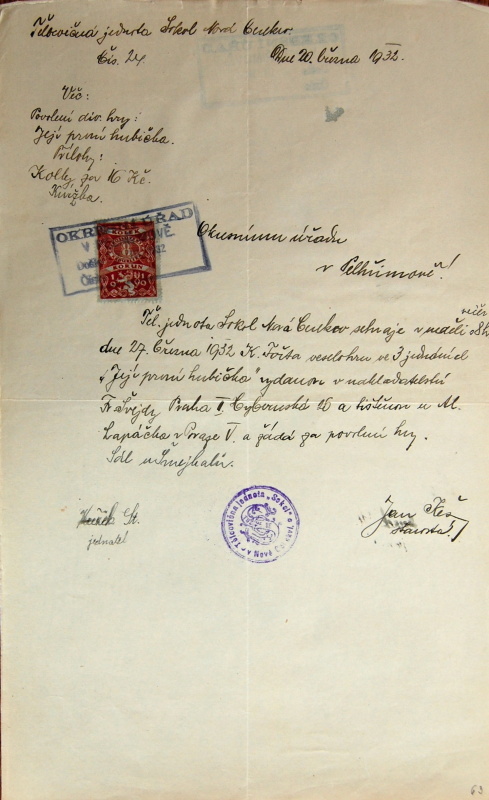 Tělocvičná jednota Sokol Nová Cerkev
Čís. 24.
Dne 20. června 1932.
Věc:
Povolení div. hry:
Její první hubička.
Přílohy:
Kolky za 16 Kč.
Knížka.
OKRESNÍ ÚŘAD
V PELHŘIMOVĚ
KOLEK
KORUN
Okresnímu úřadu
v Pelhřimově!
Těl. jednota Sokol Nová Cerkev sehraje v neděli večer
dne 27. června 1932 K. Fořta veselohru ve 3 jednáních
"Její první hubička" vydanou v nakladatelství
Fr. Švejdy Praha II, Hybernská 26 a tištěnou u Al.
Lapáčka v Praze V. a žádá za povolení hry.
Sál u Šmejkalů.
jednatel
Tělocvičná jednota „Sokol"
v Nové
Jan
starosta
63